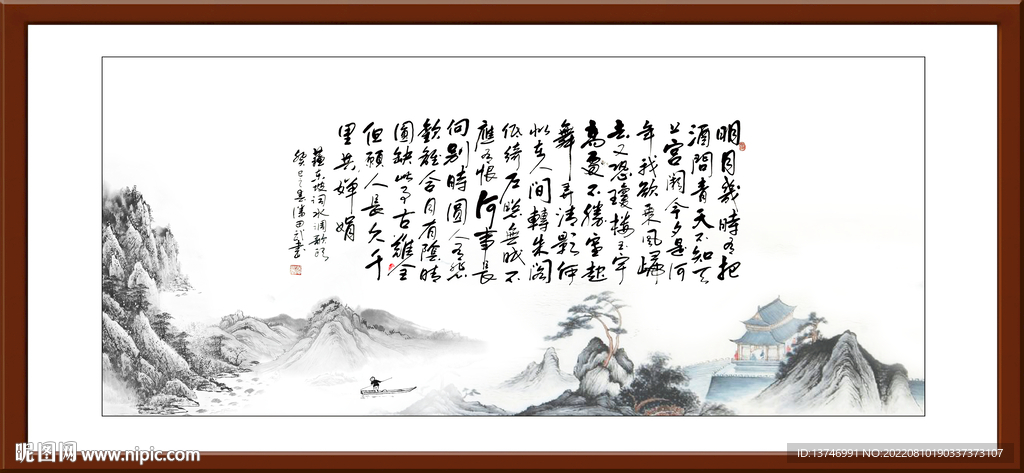 明月幾時有把
酒問青天不知天
上宮闕今夕是何
年我欲乘風歸
去又恐瓊樓玉宇
高處不勝寒起
舞弄清影何
似在人間轉朱閣
低綺户照無眠不
應有恨何事長
向别時圓人有悲
歡離合月有陰晴
圓缺此事古難全
但願人長久千
里共嬋娟
蘇東坡词水调歌頭
癸巳
昵图网 www.nipic.com
ID:13746991 NO:20220810190337373107